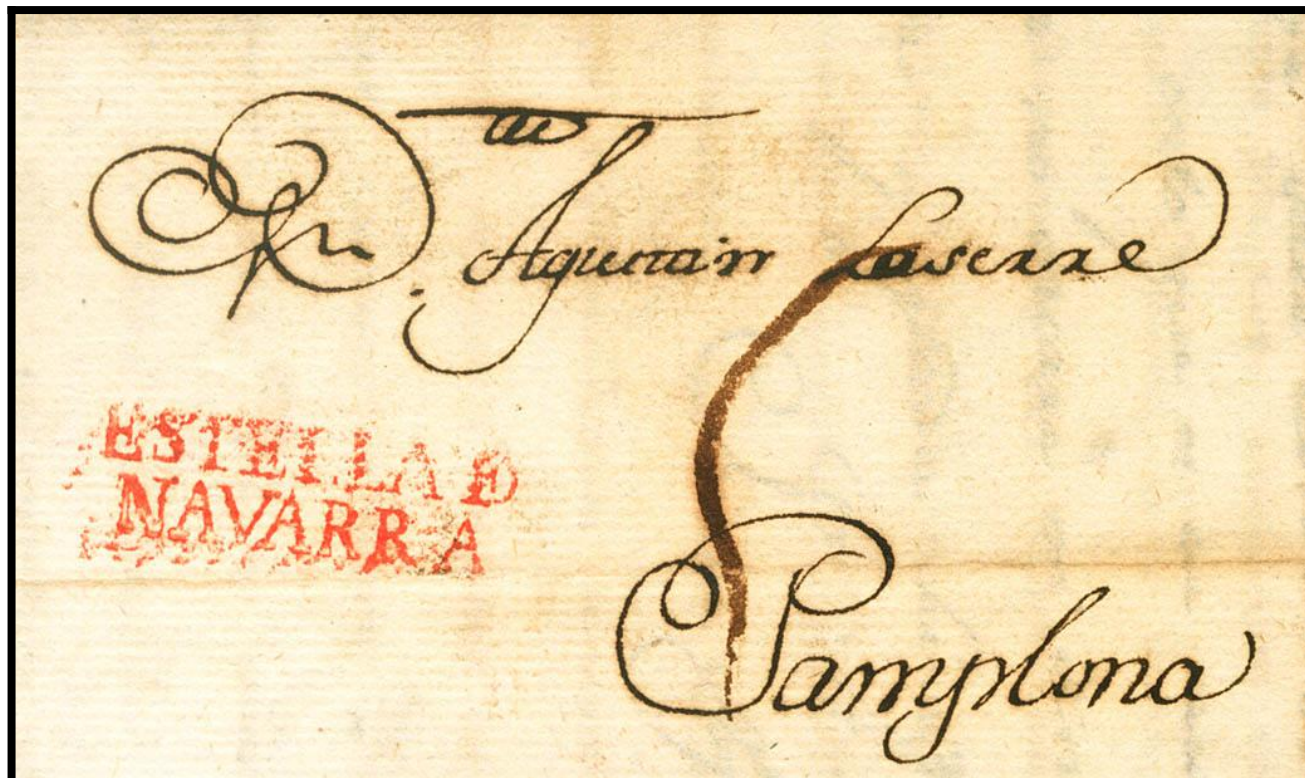 Dn. Agustin Laserre
ESTELLA D
NAVARRA
Pamplona